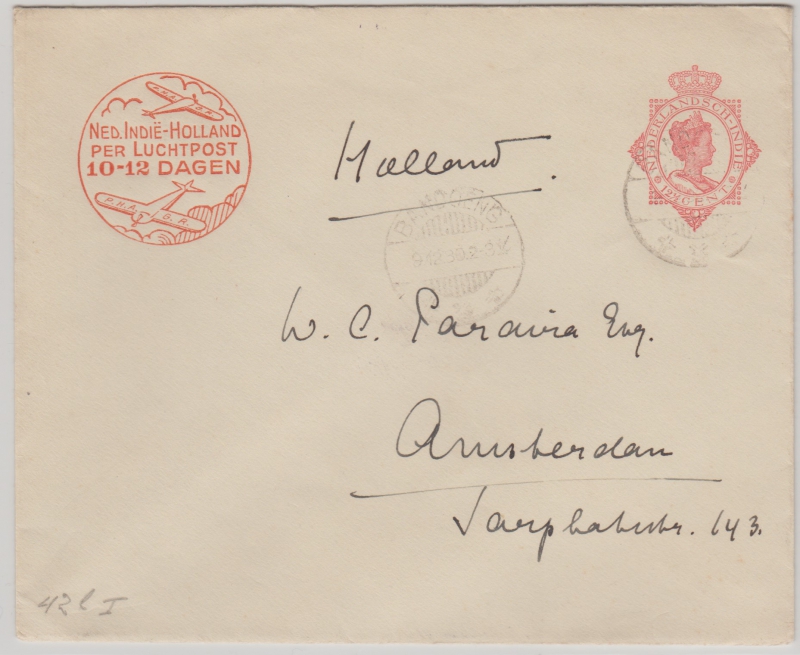 NED. INDIË-HOLLAND
PER LUCHTPOST
10-12 DAGEN
P.H.A. G.R.
NEDERLANDSCH-INDIË
12½ CENT
Holland.
BANDOENG
9.12.30.2-3
W. C. Paraira Esq.
Amsterdam
Sarphatistr. 143.
42 I